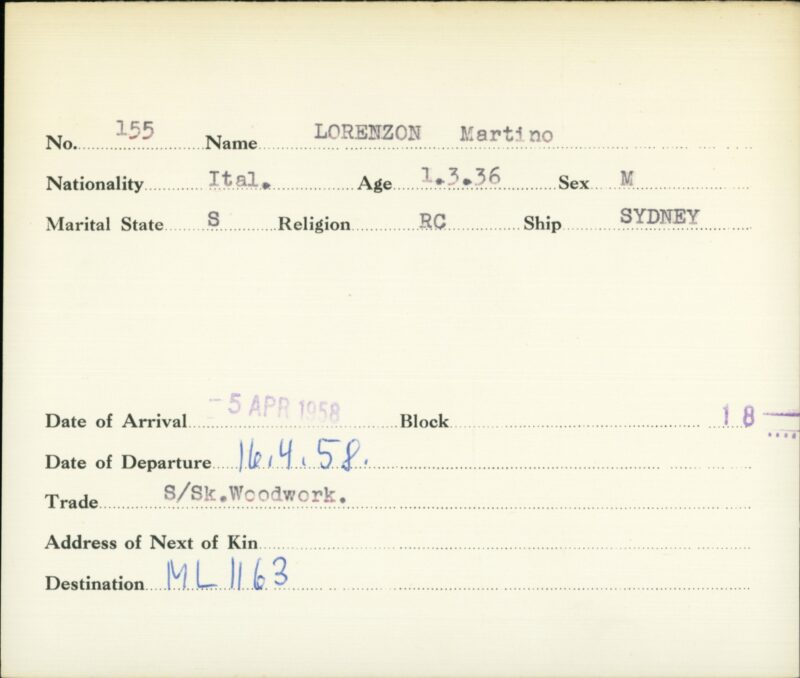 No. 155 Name LORENZON Martino
Nationality Ital. Age 1.3.36 Sex M
Marital State S Religion RC Ship SYDNEY
Date of Arrival -5 APR 1958 Block 18
Date of Departure 16.4.58.
Trade S/Sk.Woodwork.
Address of Next of Kin
Destination ML 1163